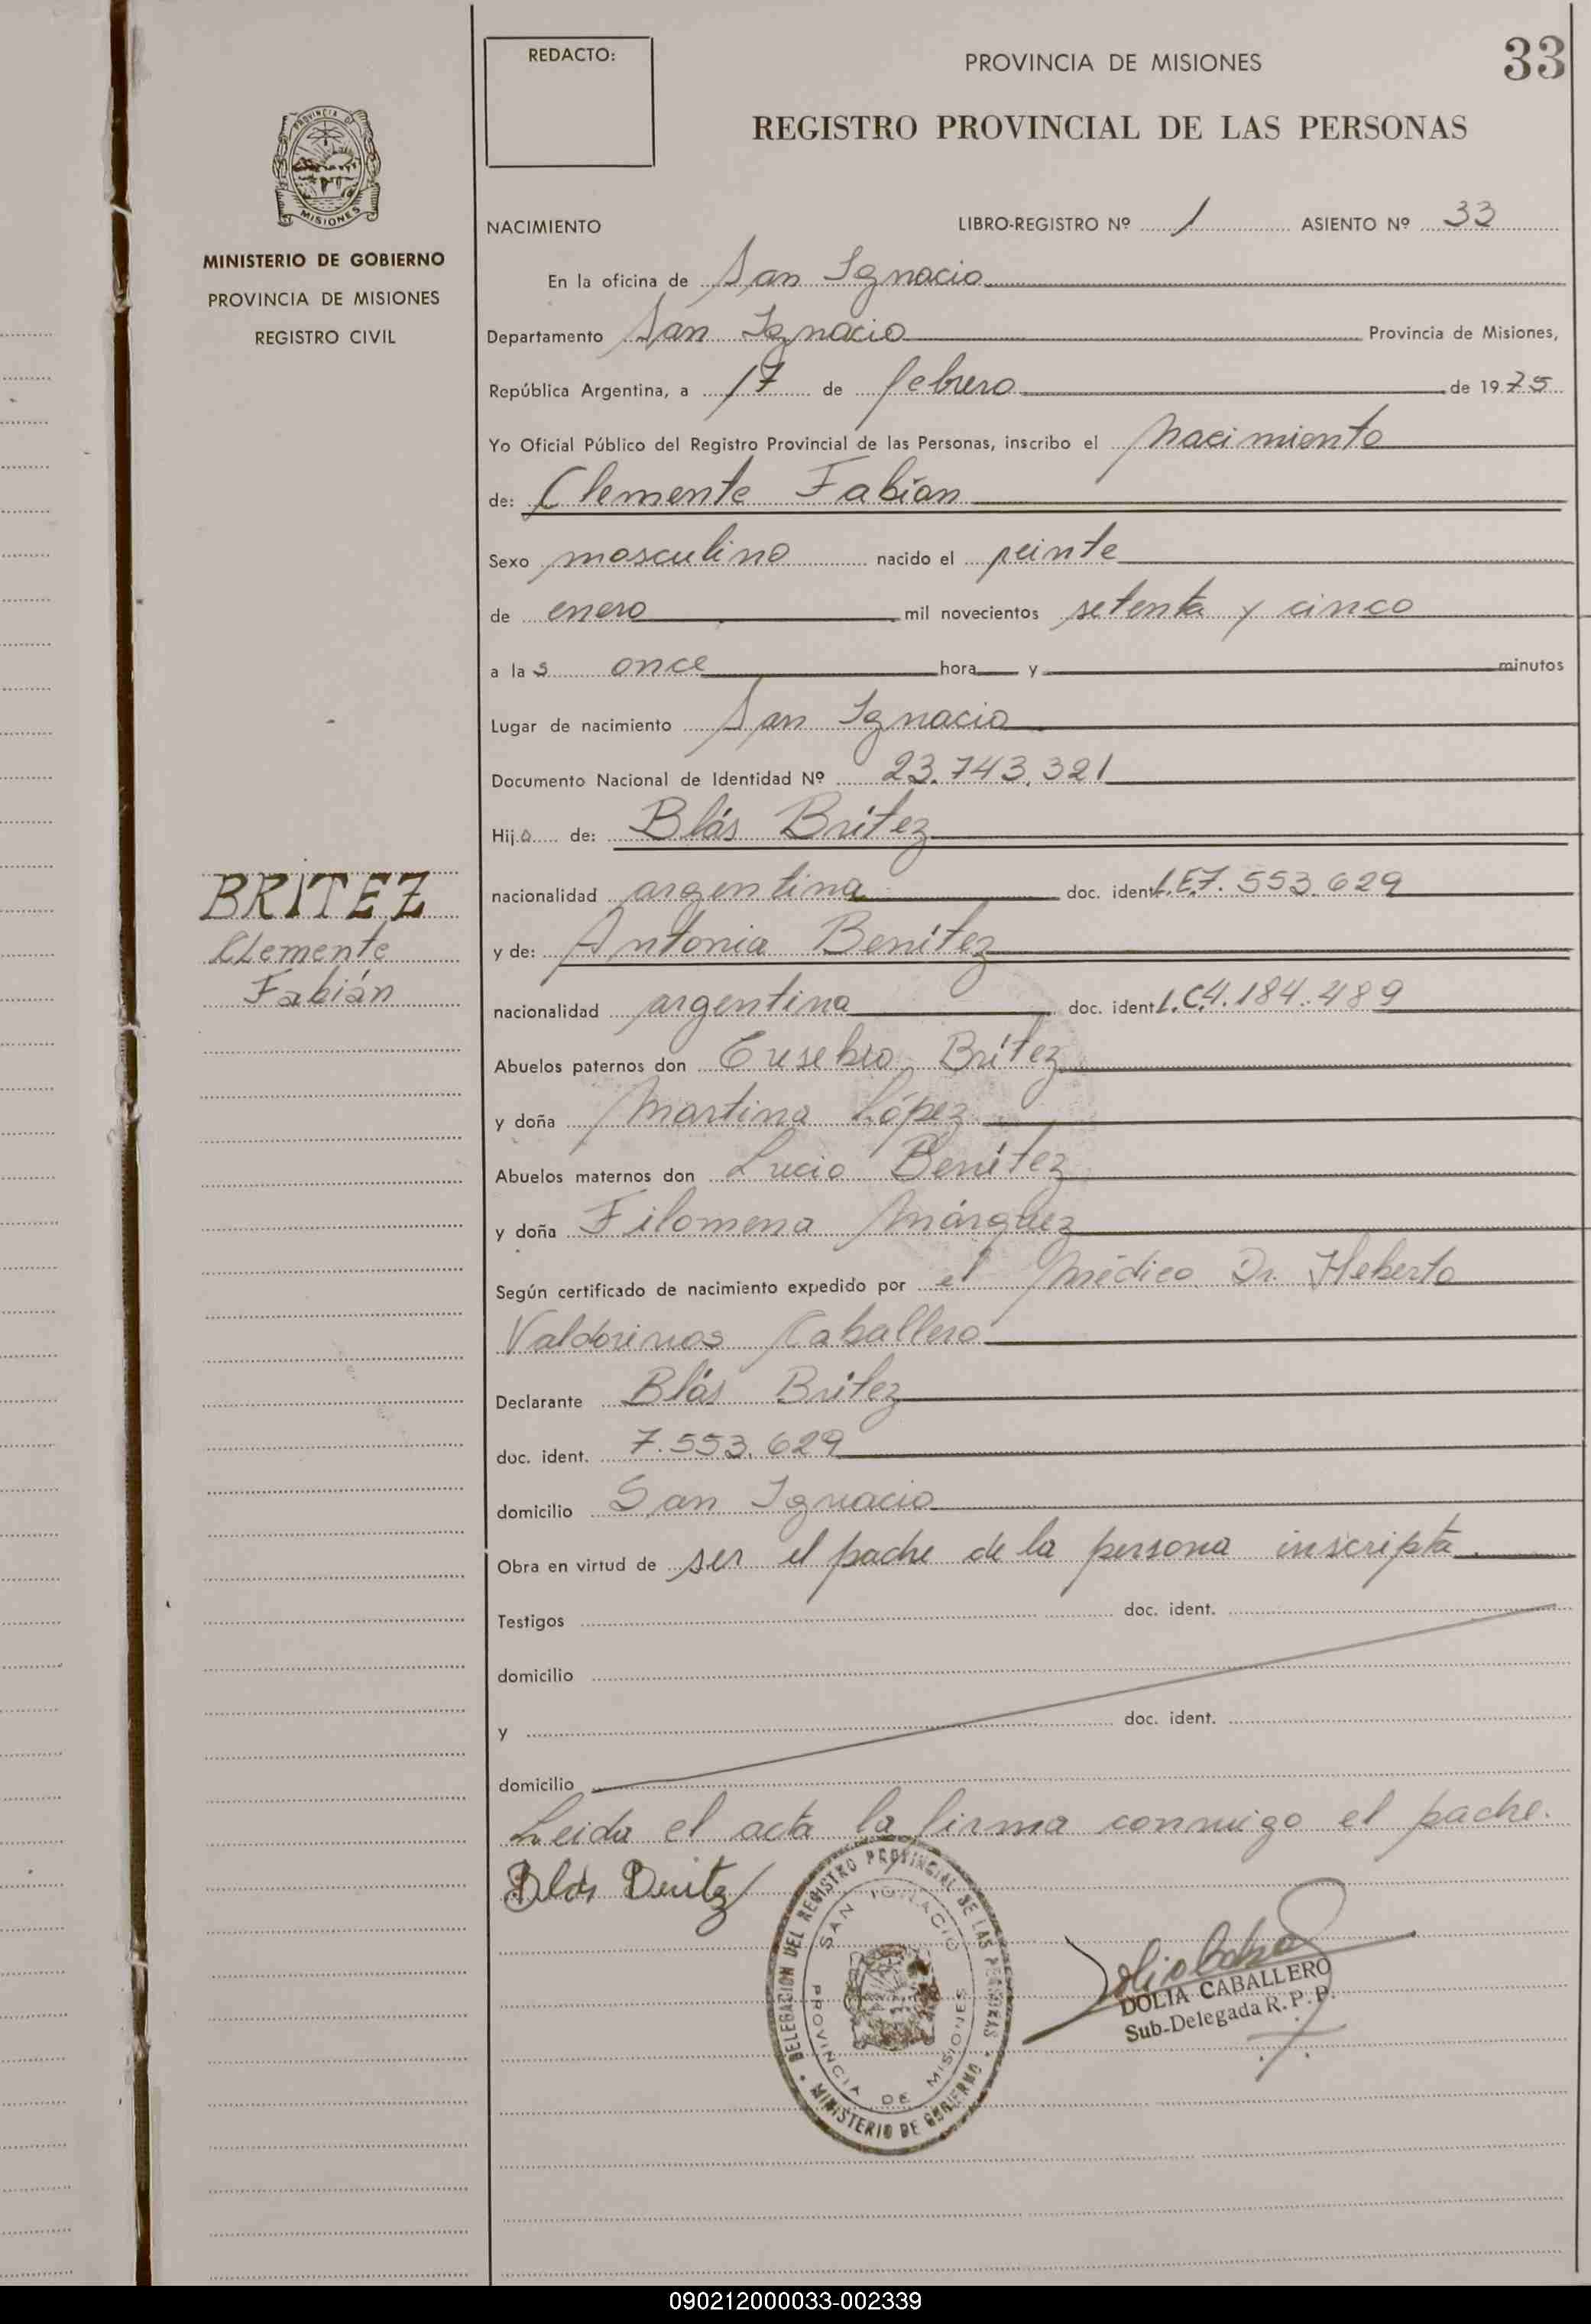 REDACTO:
PROVINCIA DE MISIONES
33
REGISTRO PROVINCIAL DE LAS PERSONAS
PROVINCIA DE
MISIONES
MINISTERIO DE GOBIERNO
PROVINCIA DE MISIONES
REGISTRO CIVIL
NACIMIENTO LIBRO-REGISTRO Nº 1 ASIENTO Nº 33
En la oficina de San Ignacio
Departamento San Ignacio Provincia de Misiones,
República Argentina, a 17 de febrero de 1975
Yo Oficial Público del Registro Provincial de las Personas, inscribo el nacimiento
de: Clemente Fabián
Sexo masculino nacido el veinte
de enero mil novecientos setenta y cinco
a las once hora y minutos
Lugar de nacimiento San Ignacio
Documento Nacional de Identidad Nº 23.743.321
Hijo de: Blás Brítez
BRITEZ
Clemente
Fabián
nacionalidad argentina doc. ident. L.E.7.553.629
y de: Antonia Benítez
nacionalidad argentina doc. ident. L.C.4.184.489
Abuelos paternos don Eusebio Brítez
y doña Martina López
Abuelos maternos don Lucio Benítez
y doña Filomena Márquez
Según certificado de nacimiento expedido por el Médico Dr. Heberto
Valdovinos Caballero
Declarante Blás Brítez
doc. ident. 7.553.629
domicilio San Ignacio
Obra en virtud de ser el padre de la persona inscripta.
Testigos doc. ident.
domicilio
y doc. ident.
domicilio
Leída el acta la firma conmigo el padre.
Blás Britez
DELEGACION DEL REGISTRO PROVINCIAL DE LAS PERSONAS
SAN IGNACIO
PROVINCIA DE MISIONES
MINISTERIO DE GOBIERNO
DOLIA CABALLERO
Sub-Delegada R.P.P.
090212000033-002339